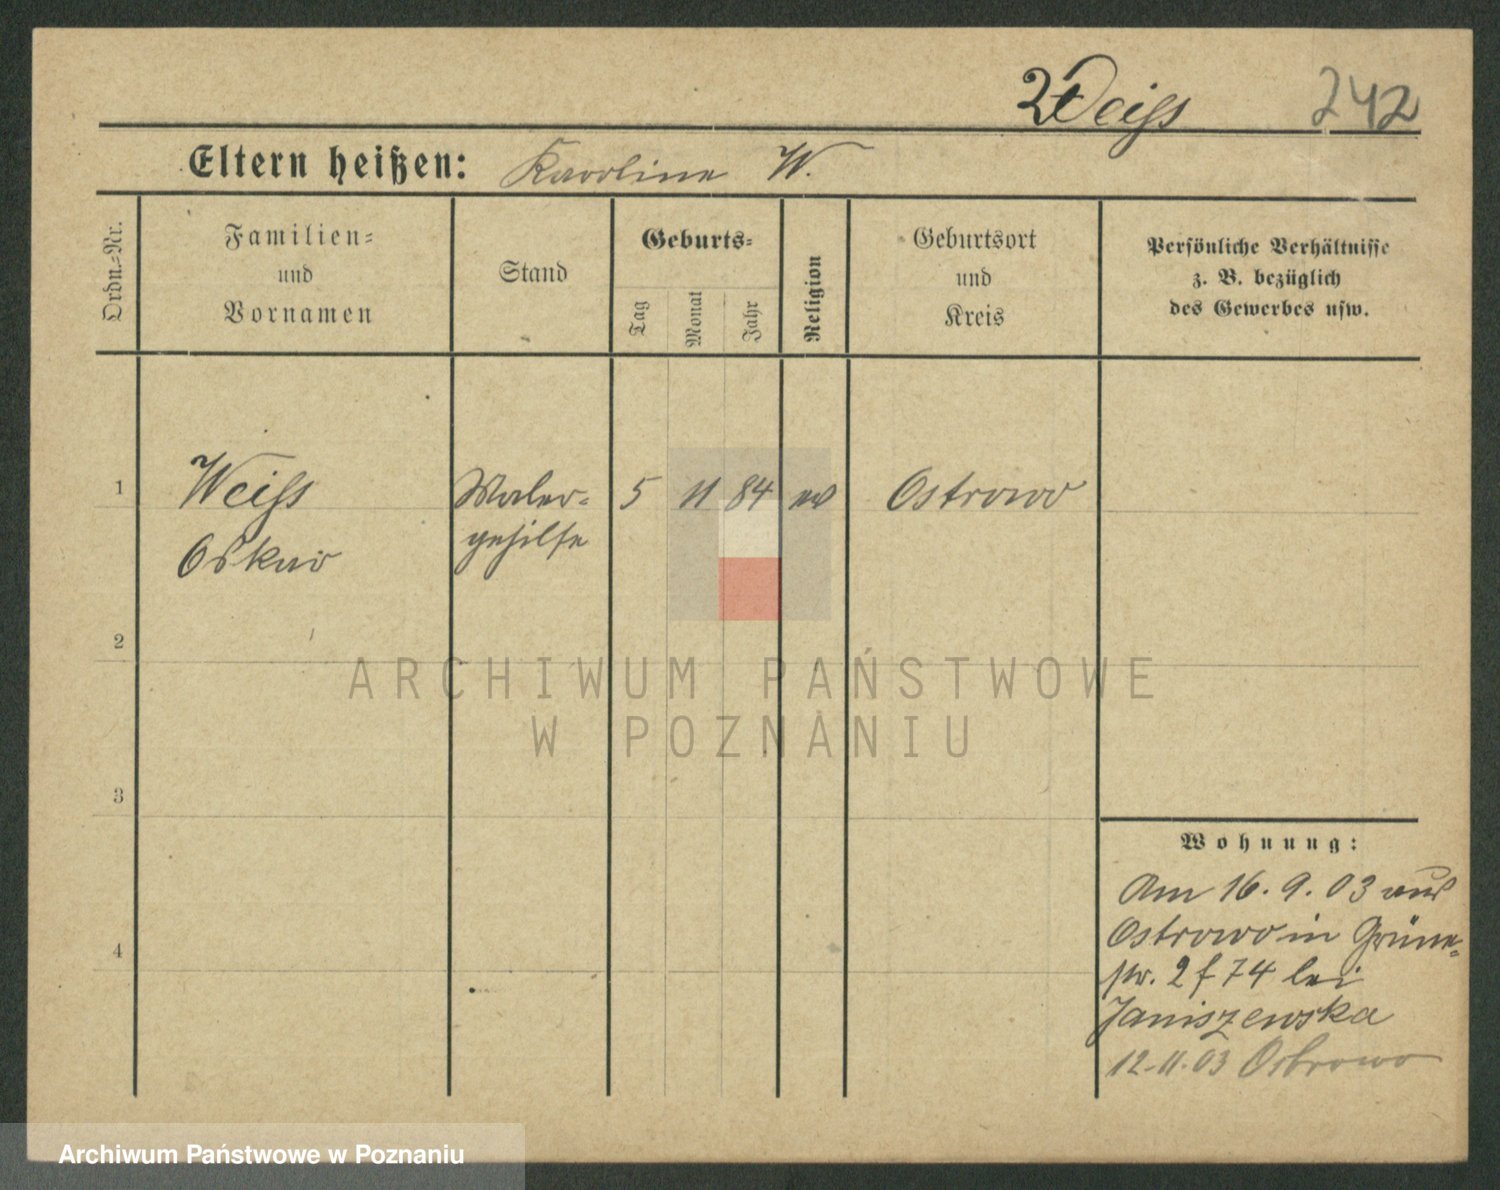 Weiss 242
Eltern heißen: Karoline W.
Ordn.-Nr.
Familien-
und
Vornamen
Stand
Geburts-
Tag
Monat
Jahr
Religion
Geburtsort
und
Kreis
Persönliche Verhältnisse
z. B. bezüglich
des Gewerbes usw.
1 Weiss Maler- 5 11 84 ev Ostrowo
Oskar gehilfe
2
ARCHIWUM PAŃSTWOWE
W POZNANIU
3
Wohnung:
Am 16. 9. 03 aus
Ostrowo in Grüne-
str. 2 f 74 bei
Janiszewska
12-11.03 Ostrowo
4
Archiwum Państwowe w Poznaniu